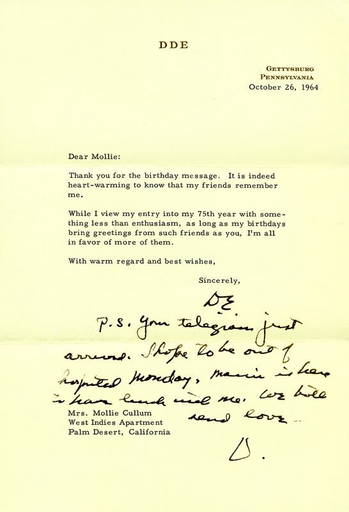 DDE
GETTYSBURG
PENNSYLVANIA
October 26, 1964
Dear Mollie:
Thank you for the birthday message. It is indeed
heart-warming to know that my friends remember
me.
While I view my entry into my 75th year with some-
thing less than enthusiasm, as long as my birthdays
bring greetings from such friends as you, I'm all
in favor of more of them.
With warm regard and best wishes,
Sincerely,
DE
P.S. Your telegram just
arrived. I hope to be out of
hospital Monday. Mamie is here
to have lunch with me. We both
send love
D.
Mrs. Mollie Cullum
West Indies Apartment
Palm Desert, California